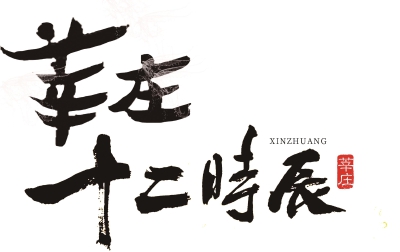 莘庄
十二時辰
XINZHUANG
莘庄